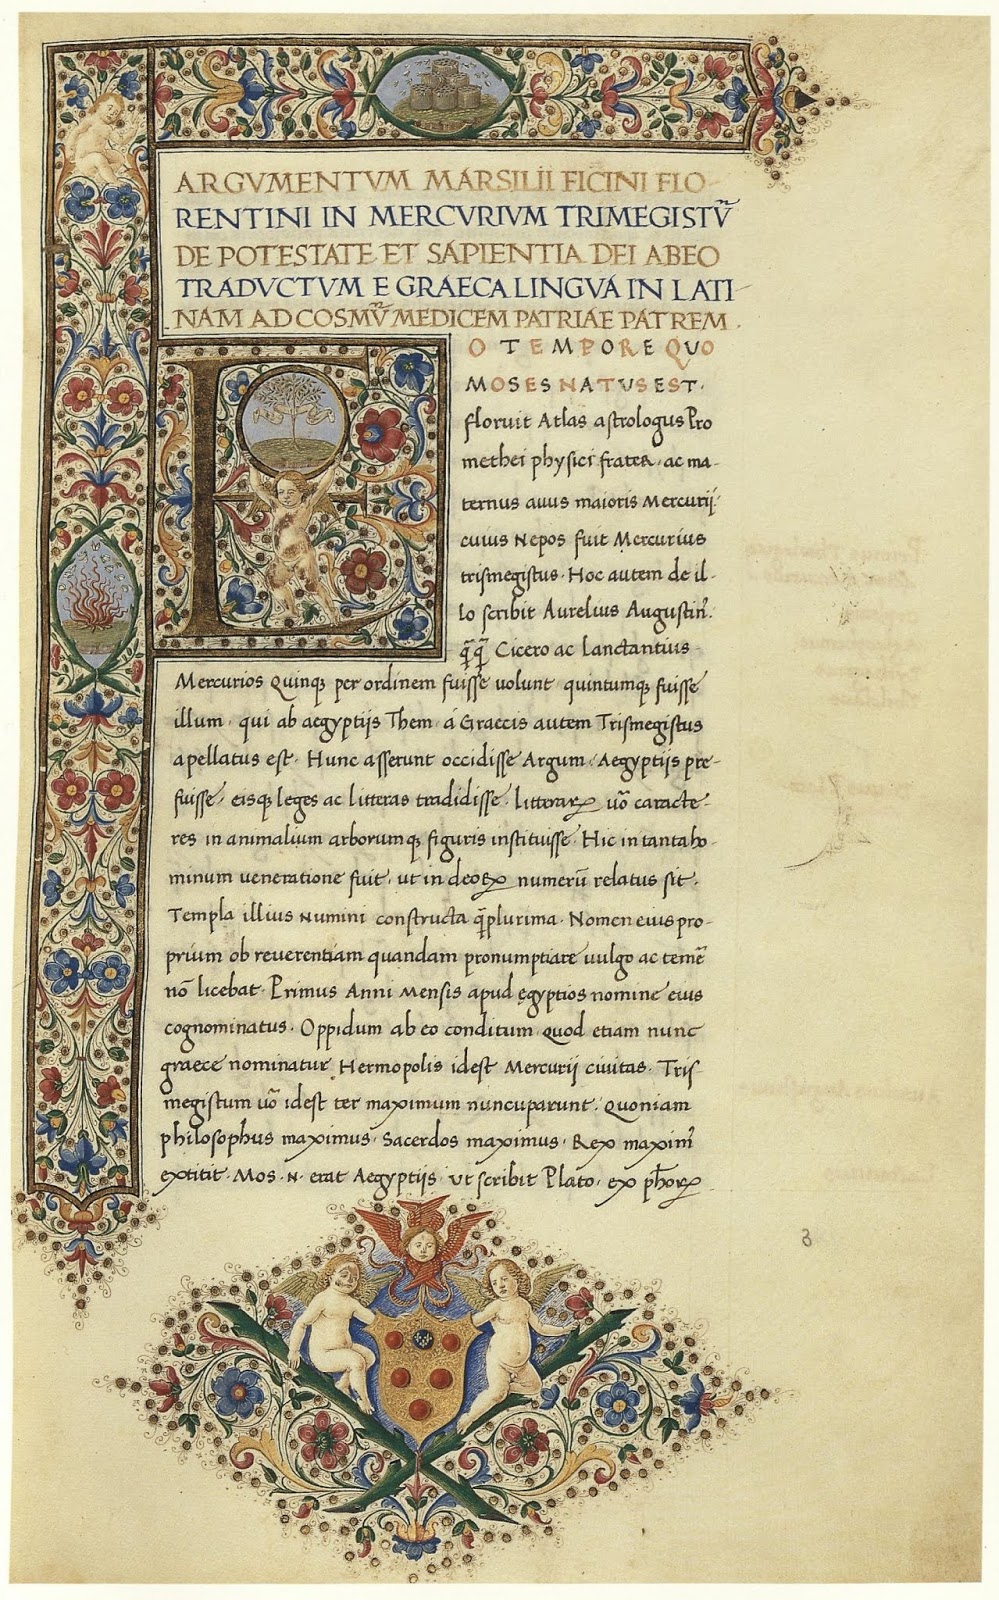 ARGVMENTVM MARSILII FICINI FLO
RENTINI IN MERCVRIVM TRIMEGISTṼ
DE POTESTATE ET SAPIENTIA DEI ABEO
TRADVCTVM E GRAECA LINGVA IN LATI
NAM AD COSMṼ MEDICEM PATRIAE PATREM.
E O TEMPORE QUO
MOSES NATUS EST.
floruit Atlas astrologus Pro
methei physici frater. ac ma-
ternus auus maioris Mercurij.
cuius Nepos fuit Mercurius
trismegistus. Hoc autem de il-
lo scribit Aurelius Augustin9.
q̃q̃ Cicero ac Lanctantius
Mercurios quinqꝫ per ordinem fuisse uolunt. quintumqꝫ fuisse
illum. qui ab aegyptijs Them. á Graecis autem Trismegistus
apellatus est. Hunc asserunt occidisse Argum. Aegyptijs pre-
fuisse. eisqꝫ leges ac litteras tradidisse. litteraꝝ uõ caracte-
res in animalium arborumqꝫ figuris instituisse. Hic in tanta ho-
minum ueneratione fuit. ut in deoꝝ numerũ relatus sit.
Templa illius numini constructa q̃plurima. Nomen eius pro-
prium ob reuerentiam quandam pronumptiare uulgo ac temẽ
nõ licebat. Primus Anni Mensis apud ęgyptios nomine eius
cognominatus. Oppidum ab eo conditum quod etiam nunc
graece nominatur Hermopolis idest Mercurij ciuitas. Tris-
megistum uõ idest ter maximum nuncuparunt. quoniam
philosophus maximus. Sacerdos maximus. Rex maxim9
extitit. Mos. N. erat Aegyptijs ut scribit Plato. ex phõꝝ
3